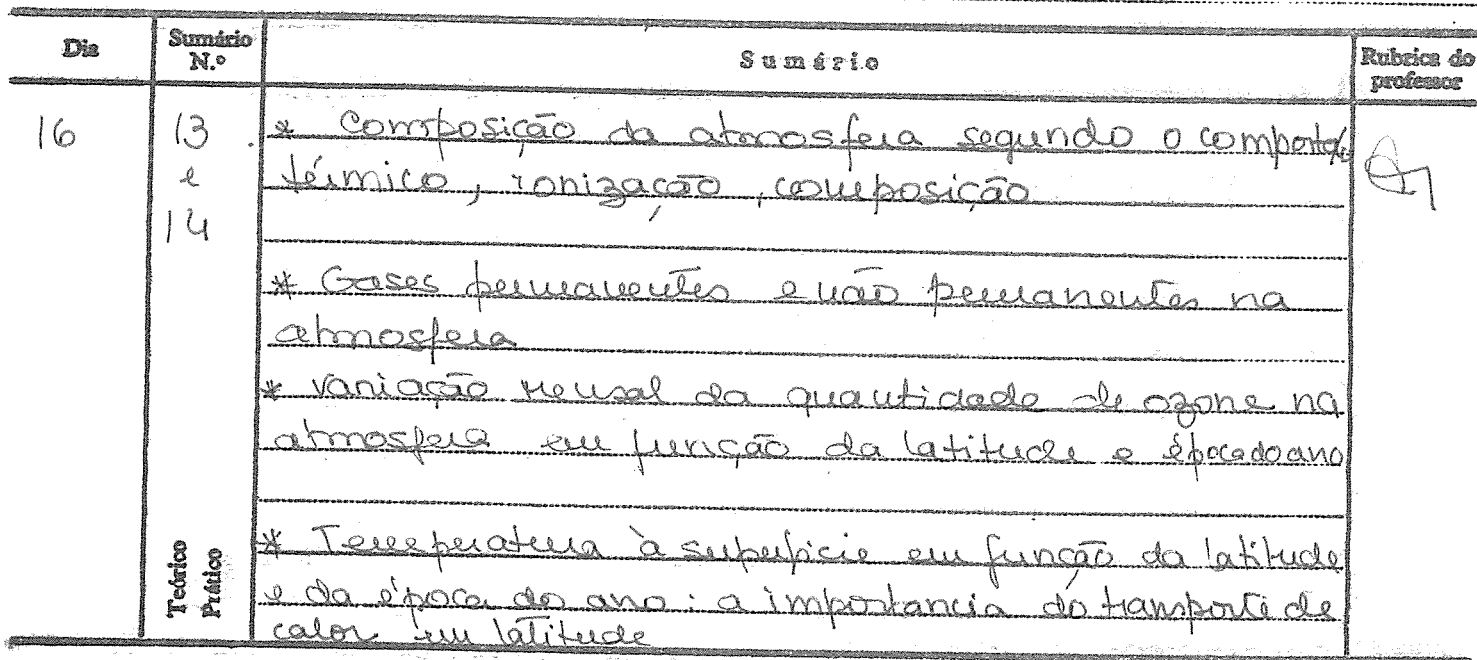 Dia Sumário N.º Sumário Rubrica do professor
16 13 * Composição da atmosfera segundo o
e térmico, ionização, composição
14
* Gases permanentes e não permanentes na
atmosfera
* Variação mensal da quantidade de ozone na
atmosfera em função da latitude e época do ano
* Temperatura à superfície em função da latitude
e da época do ano: a importancia do transporte de
calor em latitude
Teórico
Prático